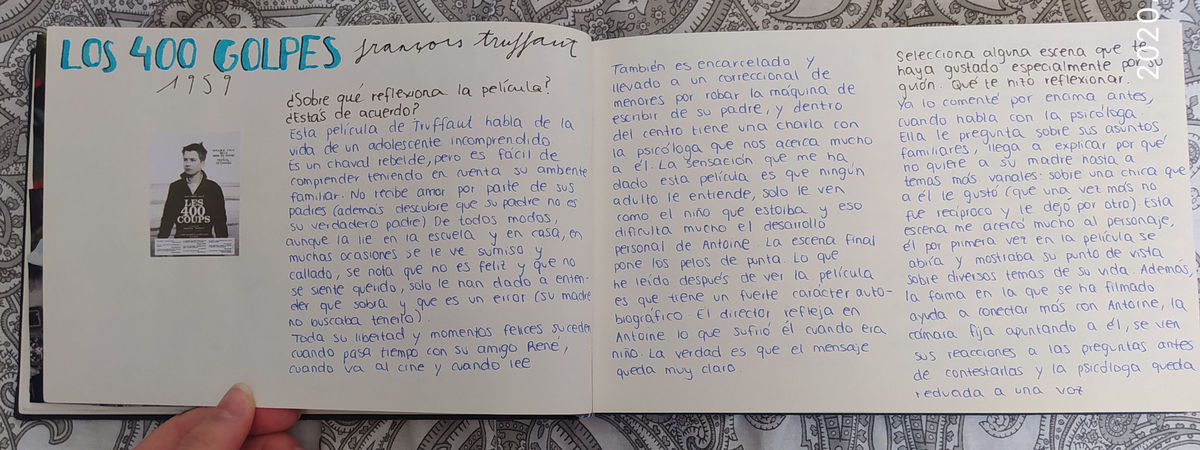 LOS 400 GOLPES françois truffaut
1959
LES
400
COUPS
¿Sobre qué reflexiona la película?
¿Estás de acuerdo?
Esta película de Truffaut habla de la
vida de un adolescente incomprendido
Es un chaval rebelde, pero es fácil de
comprender teniendo en cuenta su ambiente
familiar. No recibe amor por parte de sus
padres (además descubre que su padre no es
su verdadero padre). De todos modos,
aunque la lie en la escuela y en casa, en
muchas ocasiones se le ve sumiso y
callado, se nota que no es feliz y que no
se siente querido, solo le han dado a enten-
der que sobra y que es un error (su madre
no buscaba tenerlo).
Toda su libertad y momentos felices suceden
cuando pasa tiempo con su amigo René,
cuando va al cine y cuando lee
También es encarcelado y
llevado a un correccional de
menores por robar la máquina de
escribir de su padre, y dentro
del centro tiene una charla con
la psicóloga que nos acerca mucho
a él. La sensación que me ha
dado esta película es que ningún
adulto le entiende, solo le ven
como el niño que estorba y eso
dificulta mucho el desarrollo
personal de Antoine. La escena final
pone los pelos de punta. Lo que
he leído después de ver la película
es que tiene un fuerte carácter auto-
biográfico. El director refleja en
Antoine lo que sufrió él cuando era
niño. La verdad es que el mensaje
queda muy claro.
Selecciona alguna escena que te
haya gustado especialmente por su
guión. Qué te hizo reflexionar.
Ya lo comenté por encima antes,
cuando habla con la psicóloga.
Ella le pregunta sobre sus asuntos
familiares, llega a explicar por qué
no quiere a su madre hasta a
temas más vanales: sobre una chica que
a él le gustó (que una vez más no
fue recíproco y le dejó por otro). Esta
escena me acercó mucho al personaje,
él por primera vez en la película se
abría y mostraba su punto de vista
sobre diversos temas de su vida. Además,
la forma en la que se ha filmado
ayuda a conectar más con Antoine, la
cámara fija apuntando a él, se ven
sus reacciones a las preguntas antes
de contestarlas y la psicóloga queda
reduada a una voz
2020